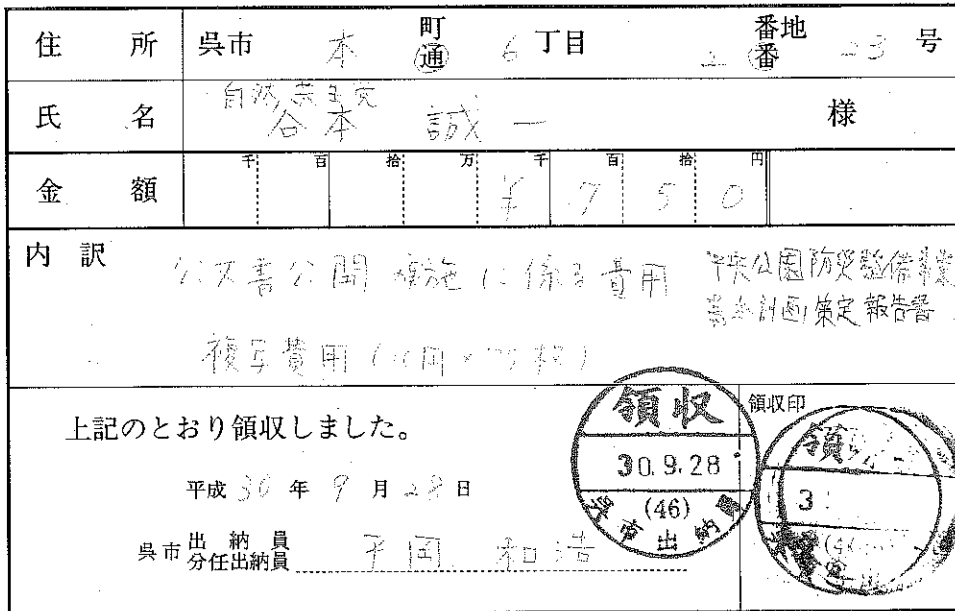 住所 呉市 本 町 通 6 丁目 2 番地 番 23 号
自然共生党
氏名 谷本 誠一 様
千 百 拾 万 千 百 拾 円
金額 ¥ 7 5 0
内訳
公文書公開 実施に係る費用 中央公園防災整備事業
基本計画策定報告書
複写費用(10円×75枚)
上記のとおり領収しました。
領収印
平成 30 年 9 月 28 日
呉市 出納員 分任出納員 平岡 和浩
領収
30.9.28
(46)
呉市出納員
領
3